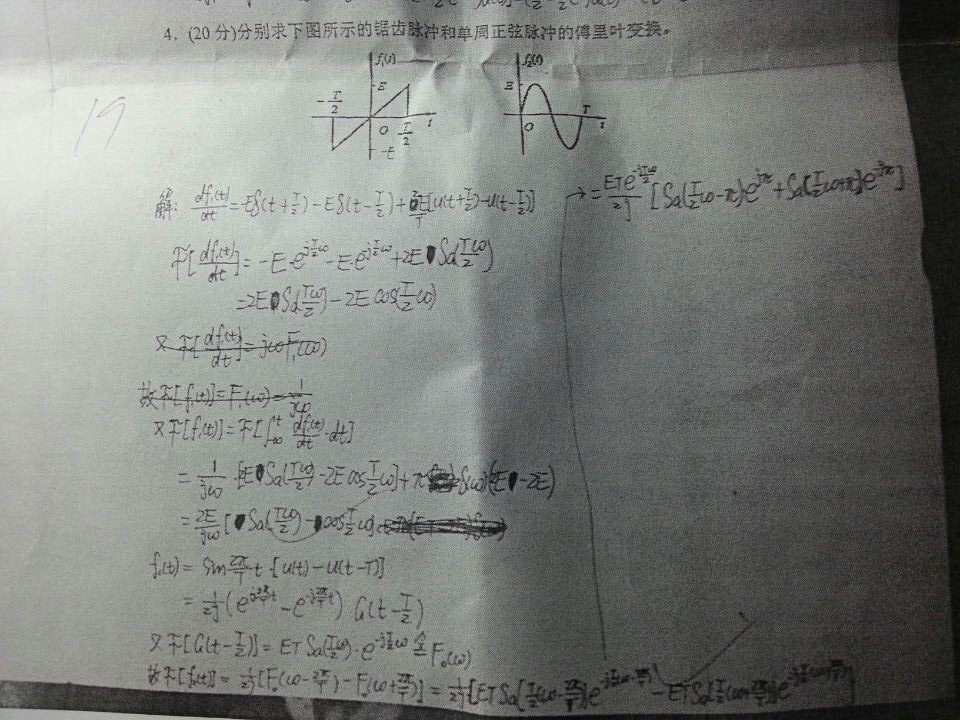 4. (20分)分别求下图所示的锯齿脉冲和单周正弦脉冲的傅里叶变换。
f₁(t) f₂(t)
-T/2 E O T/2 t -E
E O T t
19
解: df₁(t)/dt = -Eδ(t+T/2) - Eδ(t-T/2) + 2E/T[u(t+T/2)-u(t-T/2)]
F[df₁(t)/dt] = -E·e^{jT/2ω} - E·e^{jT/2ω} + 2E Sa(Tω/2)
= 2E Sa(Tω/2) - 2E cos(T/2 ω)
又 F[df₁(t)/dt] = jωF₁(ω)
故 F[f₁(t)] = F₁(ω) = 1/jω
又 F[f₁(t)] = F[∫_{-∞}^{t} df₁(t)/dt ·dt]
= 1/jω ·[2E Sa(Tω/2) - 2E cos T/2 ω] + π δ(ω)(2E - 2E)
= 2E/jω [Sa(Tω/2) - cos T/2 ω]
f₂(t) = sin 2π/T t ·[u(t)-u(t-T)]
= 1/2j (e^{j2π/T t} - e^{-j2π/T t}) G(t-T/2)
又 F[G(t-T/2)] = ET Sa(Tω/2)·e^{-jT/2ω} 令 F₀(ω)
故 F[f₂(t)] = 1/2j [F₀(ω-2π/T) - F₀(ω+2π/T)] = 1/2j [ET Sa[T/2(ω-2π/T)]e^{-jT/2(ω-2π/T)} - ET Sa[T/2(ω+2π/T)]e^{-jT/2(ω+2π/T)}]
→ = ETe^{-jT/2ω}/2j [Sa(T/2 ω-π)e^{jπ} + Sa(T/2 ω+π)e^{-jπ}]